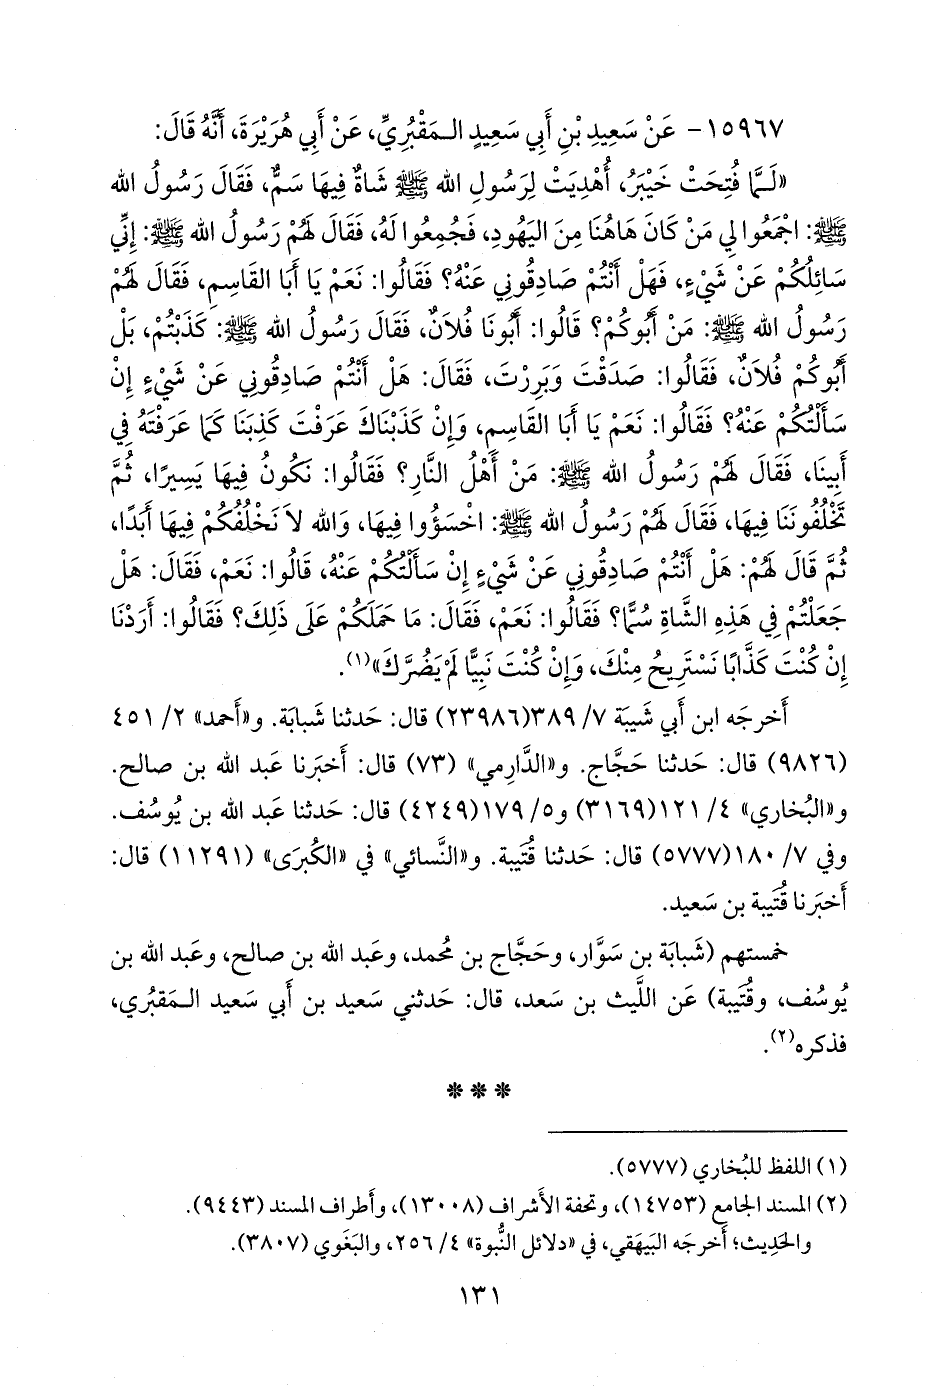 ١٥٩٦٧- عَنْ سَعِيدِ بْنِ أَبِي سَعِيدٍ الـمَقْبُرِيِّ، عَنْ أَبِي هُرَيْرَةَ، أَنَّهُ قَالَ:
«لَـمَّا فُتِحَتْ خَيْبَرُ، أُهْدِيَتْ لِرَسُولِ الله ﷺ شَاةٌ فِيهَا سَمٌّ، فَقَالَ رَسُولُ الله
ﷺ: اجْمَعُوا لِي مَنْ كَانَ هَاهُنَا مِنَ اليَهُودِ، فَجُمِعُوا لَهُ، فَقَالَ لَهُمْ رَسُولُ الله ﷺ: إِنِّي
سَائِلُكُمْ عَنْ شَيْءٍ، فَهَلْ أَنْتُمْ صَادِقُونِي عَنْهُ؟ فَقَالُوا: نَعَمْ يَا أَبَا القَاسِمِ، فَقَالَ لَهُمْ
رَسُولُ الله ﷺ: مَنْ أَبُوكُمْ؟ قَالُوا: أَبُونَا فُلاَنٌ، فَقَالَ رَسُولُ الله ﷺ: كَذَبْتُمْ، بَلْ
أَبُوكُمْ فُلاَنٌ، فَقَالُوا: صَدَقْتَ وَبَرِرْتَ، فَقَالَ: هَلْ أَنْتُمْ صَادِقُونِي عَنْ شَيْءٍ إِنْ
سَأَلْتُكُمْ عَنْهُ؟ فَقَالُوا: نَعَمْ يَا أَبَا القَاسِمِ، وَإِنْ كَذَبْنَاكَ عَرَفْتَ كَذِبَنَا كَمَا عَرَفْتَهُ فِي
أَبِينَا، فَقَالَ لَهُمْ رَسُولُ الله ﷺ: مَنْ أَهْلُ النَّارِ؟ فَقَالُوا: نَكُونُ فِيهَا يَسِيرًا، ثُمَّ
تَخْلُفُونَنَا فِيهَا، فَقَالَ لَهُمْ رَسُولُ الله ﷺ: اخْسَؤُوا فِيهَا، وَالله لاَ نَخْلُفُكُمْ فِيهَا أَبَدًا،
ثُمَّ قَالَ لَهُمْ: هَلْ أَنْتُمْ صَادِقُونِي عَنْ شَيْءٍ إِنْ سَأَلْتُكُمْ عَنْهُ، قَالُوا: نَعَمْ، فَقَالَ: هَلْ
جَعَلْتُمْ فِي هَذِهِ الشَّاةِ سُمًّا؟ فَقَالُوا: نَعَمْ، فَقَالَ: مَا حَمَلَكُمْ عَلَى ذَلِكَ؟ فَقَالُوا: أَرَدْنَا
إِنْ كُنْتَ كَذَّابًا نَسْتَرِيحُ مِنْكَ، وَإِنْ كُنْتَ نَبِيًّا لَمْ يَضُرَّكَ»(١).
أَخرجَه ابن أَبي شَيبَة ٧/ ٣٨٩(٢٣٩٨٦) قال: حَدثنا شَبابَة. و«أَحمد» ٢/ ٤٥١
(٩٨٢٦) قال: حَدثنا حَجَّاج. و«الدَّارِمي» (٧٣) قال: أَخبَرنا عَبد الله بن صالح.
و«البُخاري» ٤/ ١٢١(٣١٦٩) و٥/ ١٧٩(٤٢٤٩) قال: حَدثنا عَبد الله بن يُوسُف.
وفي ٧/ ١٨٠(٥٧٧٧) قال: حَدثنا قُتَيبة. و«النَّسائي» في «الكُبرَى» (١١٢٩١) قال:
أَخبَرنا قُتَيبة بن سَعيد.
خمستهم (شَبابَة بن سَوَّار، وحَجَّاج بن مُحمد، وعَبد الله بن صالح، وعَبد الله بن
يُوسُف، وقُتَيبة) عَن اللَّيث بن سَعد، قال: حَدثني سَعيد بن أَبي سَعيد الـمَقبُري،
فذكره(٢).
***
(١) اللفظ للبُخاري (٥٧٧٧).
(٢) المسند الجامع (١٤٧٥٣)، وتحفة الأَشراف (١٣٠٠٨)، وأَطراف المسند (٩٤٤٣).
والحَدِيث؛ أَخرجَه البَيهَقي، في «دلائل النُّبوة» ٤/ ٢٥٦، والبَغَوي (٣٨٠٧).
١٣١